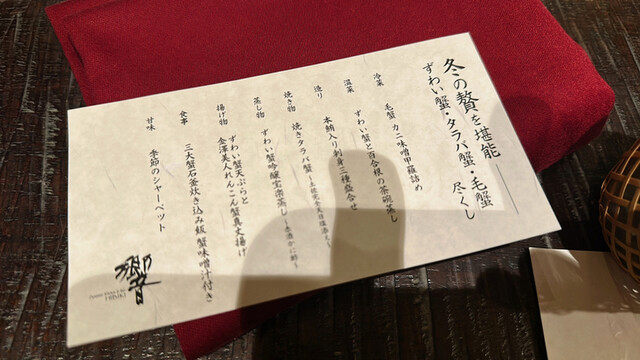 冬の贅を堪能
ずわい蟹・タラバ蟹・毛蟹 尽くし
冷菜 毛蟹 カニ味噌甲羅詰め
温菜 ずわい蟹と百合根の茶碗蒸し
造り 本鮪入り刺身三種盛合せ
焼き物 焼きタラバ蟹
蒸し物 ずわい蟹吟醸宝楽蒸し
揚げ物 ずわい蟹天ぷらと
金澤美人れんこん蟹真丈揚げ
食事 三大蟹石釜炊き込み飯 蟹味噌汁付き
甘味 季節のシャーベット
響
HIBIKI